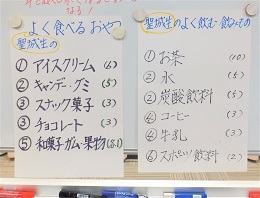 なる!
よく食べるおやつ
聖城生の
① アイスクリーム (6)
② キャンデー・グミ (5)
③ スナック菓子 (3)
③ チョコレート (3)
⑤ 和菓子・ガム・果物 (各1)
聖城生のよく飲む飲みもの
① お茶 (10)
② 水 (5)
② 炭酸飲料 (5)
④ コーヒー (3)
④ 牛乳 (3)
⑥ スポーツ飲料 (2)